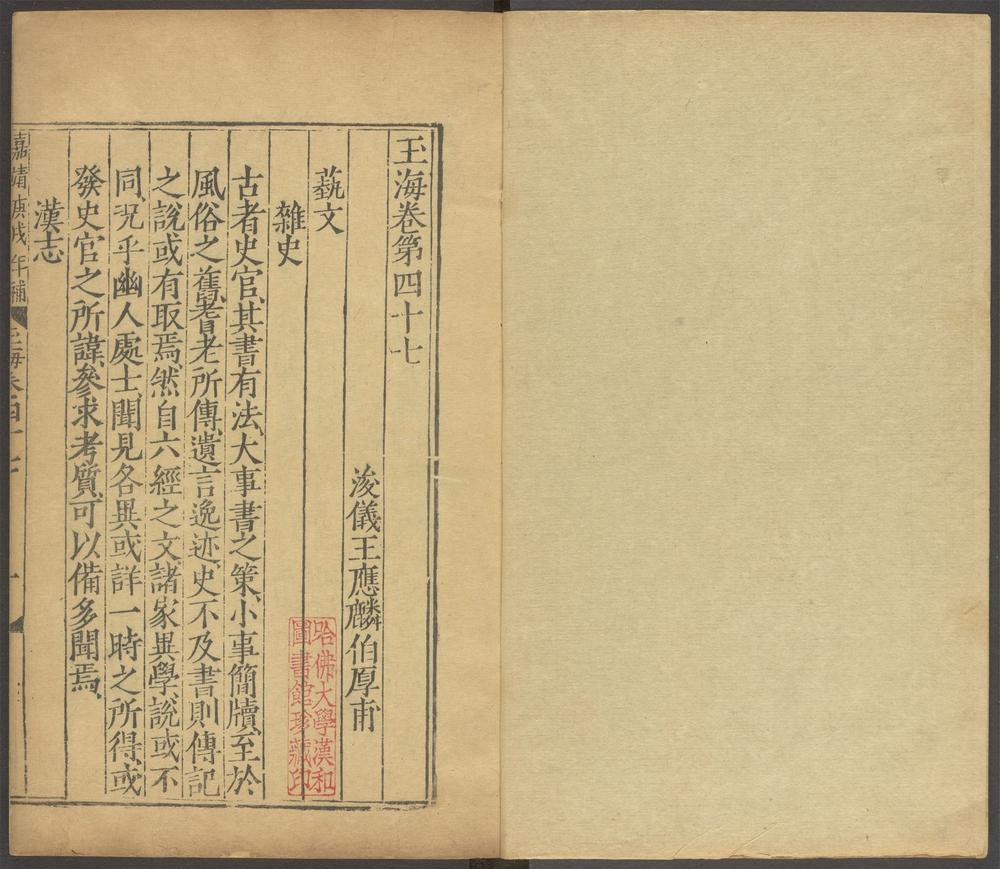 玉海卷第四十七
浚儀王應麟伯厚甫
藝文
雜史
古者史官其書有法大事書之策小事簡牘至於
風俗之舊耆老所傳遺言逸迹史不及書則傳記
之說或有取焉然自六經之文諸家異學說或不
同況乎幽人處士聞見各異或詳一時之所得或
發史官之所諱參求考質可以備多聞焉
漢志
嘉靖庚戌年補
玉海卷四十七
一
哈佛大學漢和
圖書館珍藏印